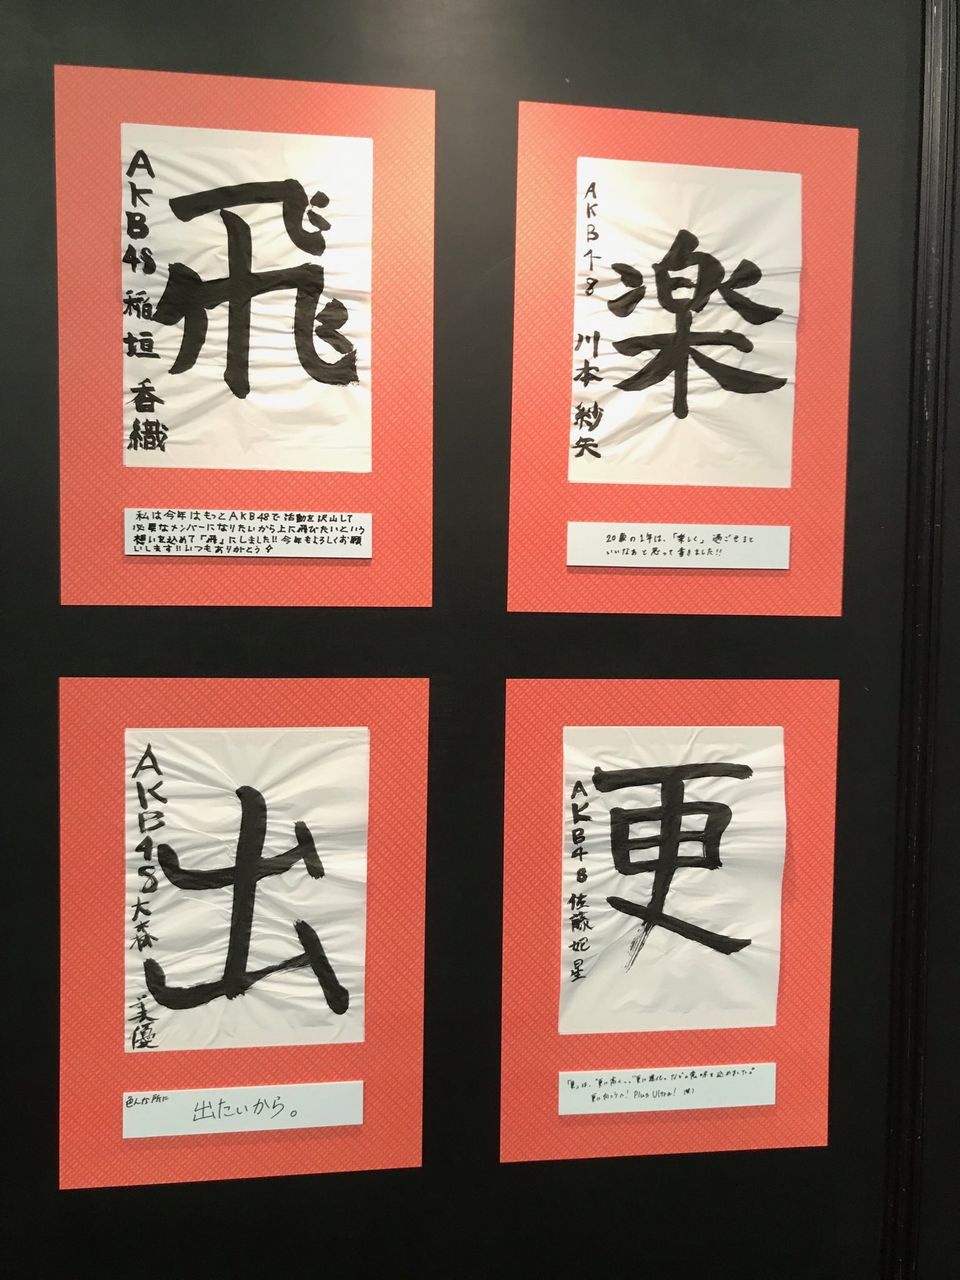 AKB48 稲垣 香織
飛
私は今年はもっとAKB48で活動を沢山して
必要なメンバーになりたいから上に飛びたいという
想いを込めて「飛」にしました!!今年もよろしくお願
いします!!いつもありがとう☆
AKB48 川本 紗矢
楽
20歳の1年は、「楽しく」過ごせると
いいなぁと思って書きました!!
AKB48 大森 美優
出
色んな所に
出たいから。
AKB48 佐藤 妃星
更
「更」は、"更に高く"、"更に進化"などの意味を込めました。
更に向こうへ! Plus Ultra!